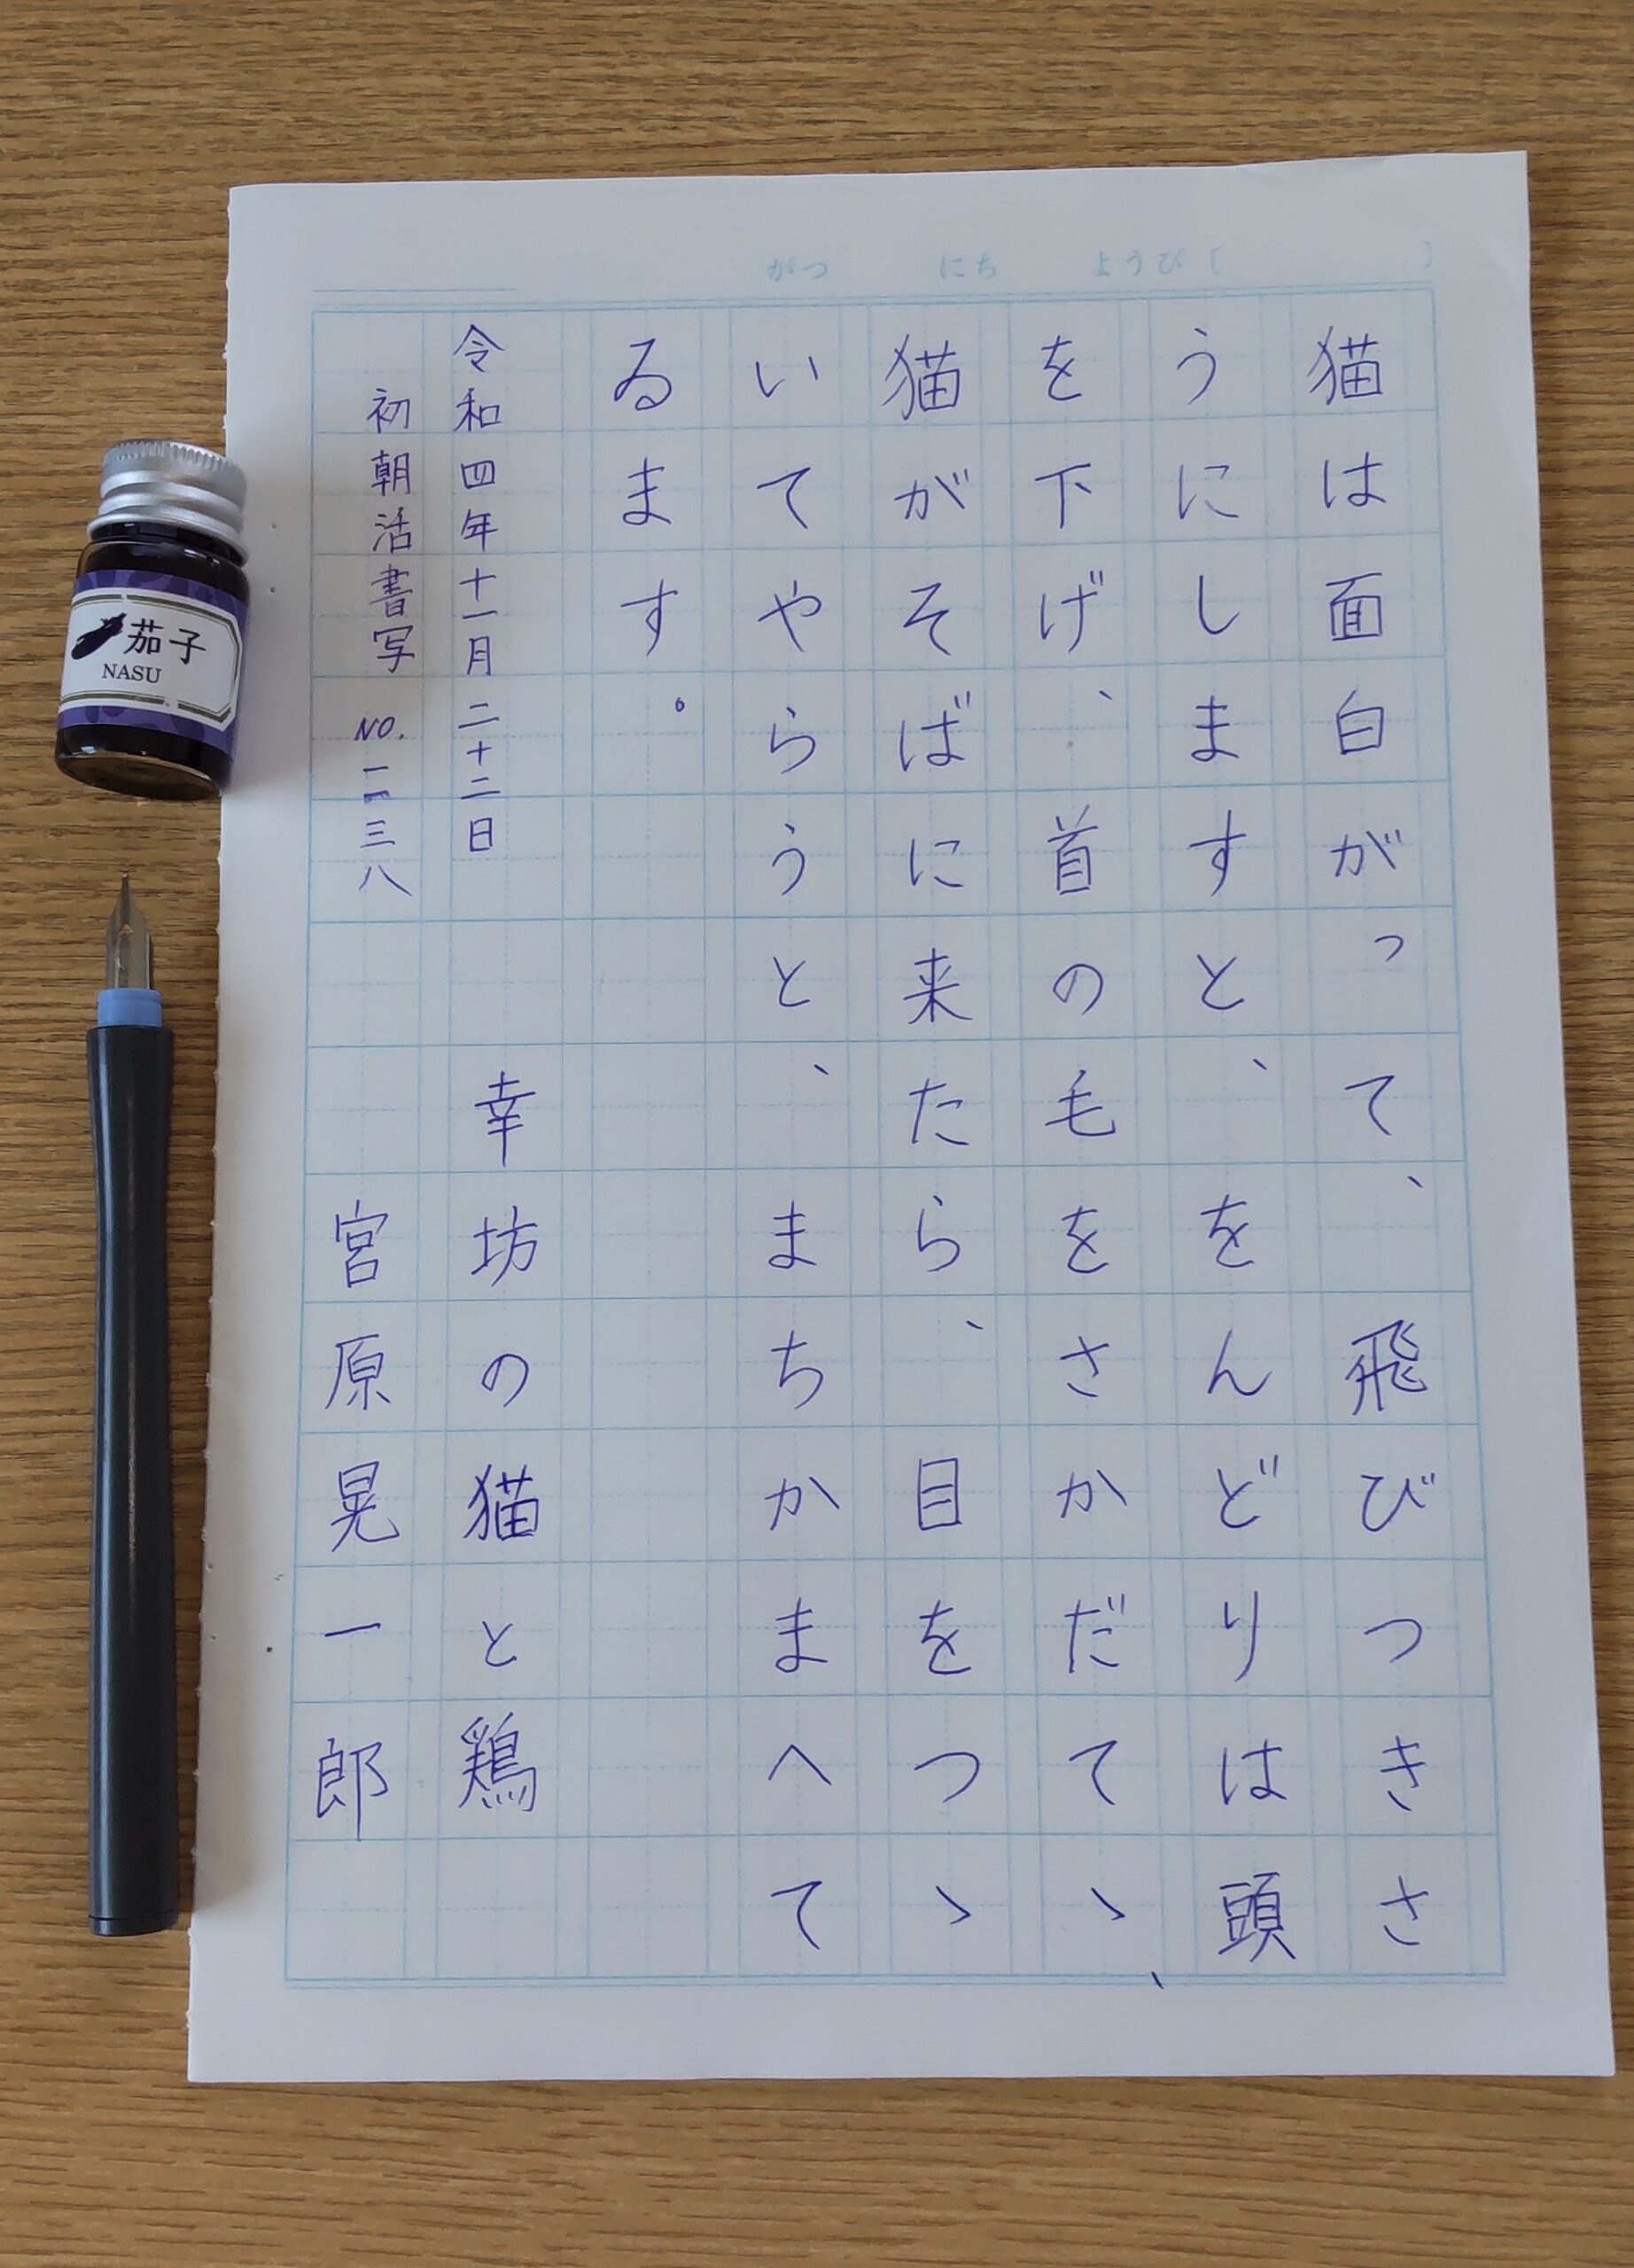 がつ にち ようび〔 〕
猫は面白がって、飛びつきさ
うにしますと、をんどりは頭
を下げ、首の毛をさかだてゝ、
猫がそばに来たら、目をつゝ
いてやらうと、まちかまへて
ゐます。
令和四年十一月二十二日 幸坊の猫と鶏
初朝活書写 NO.一二三八 宮原晃一郎
茄子
NASU